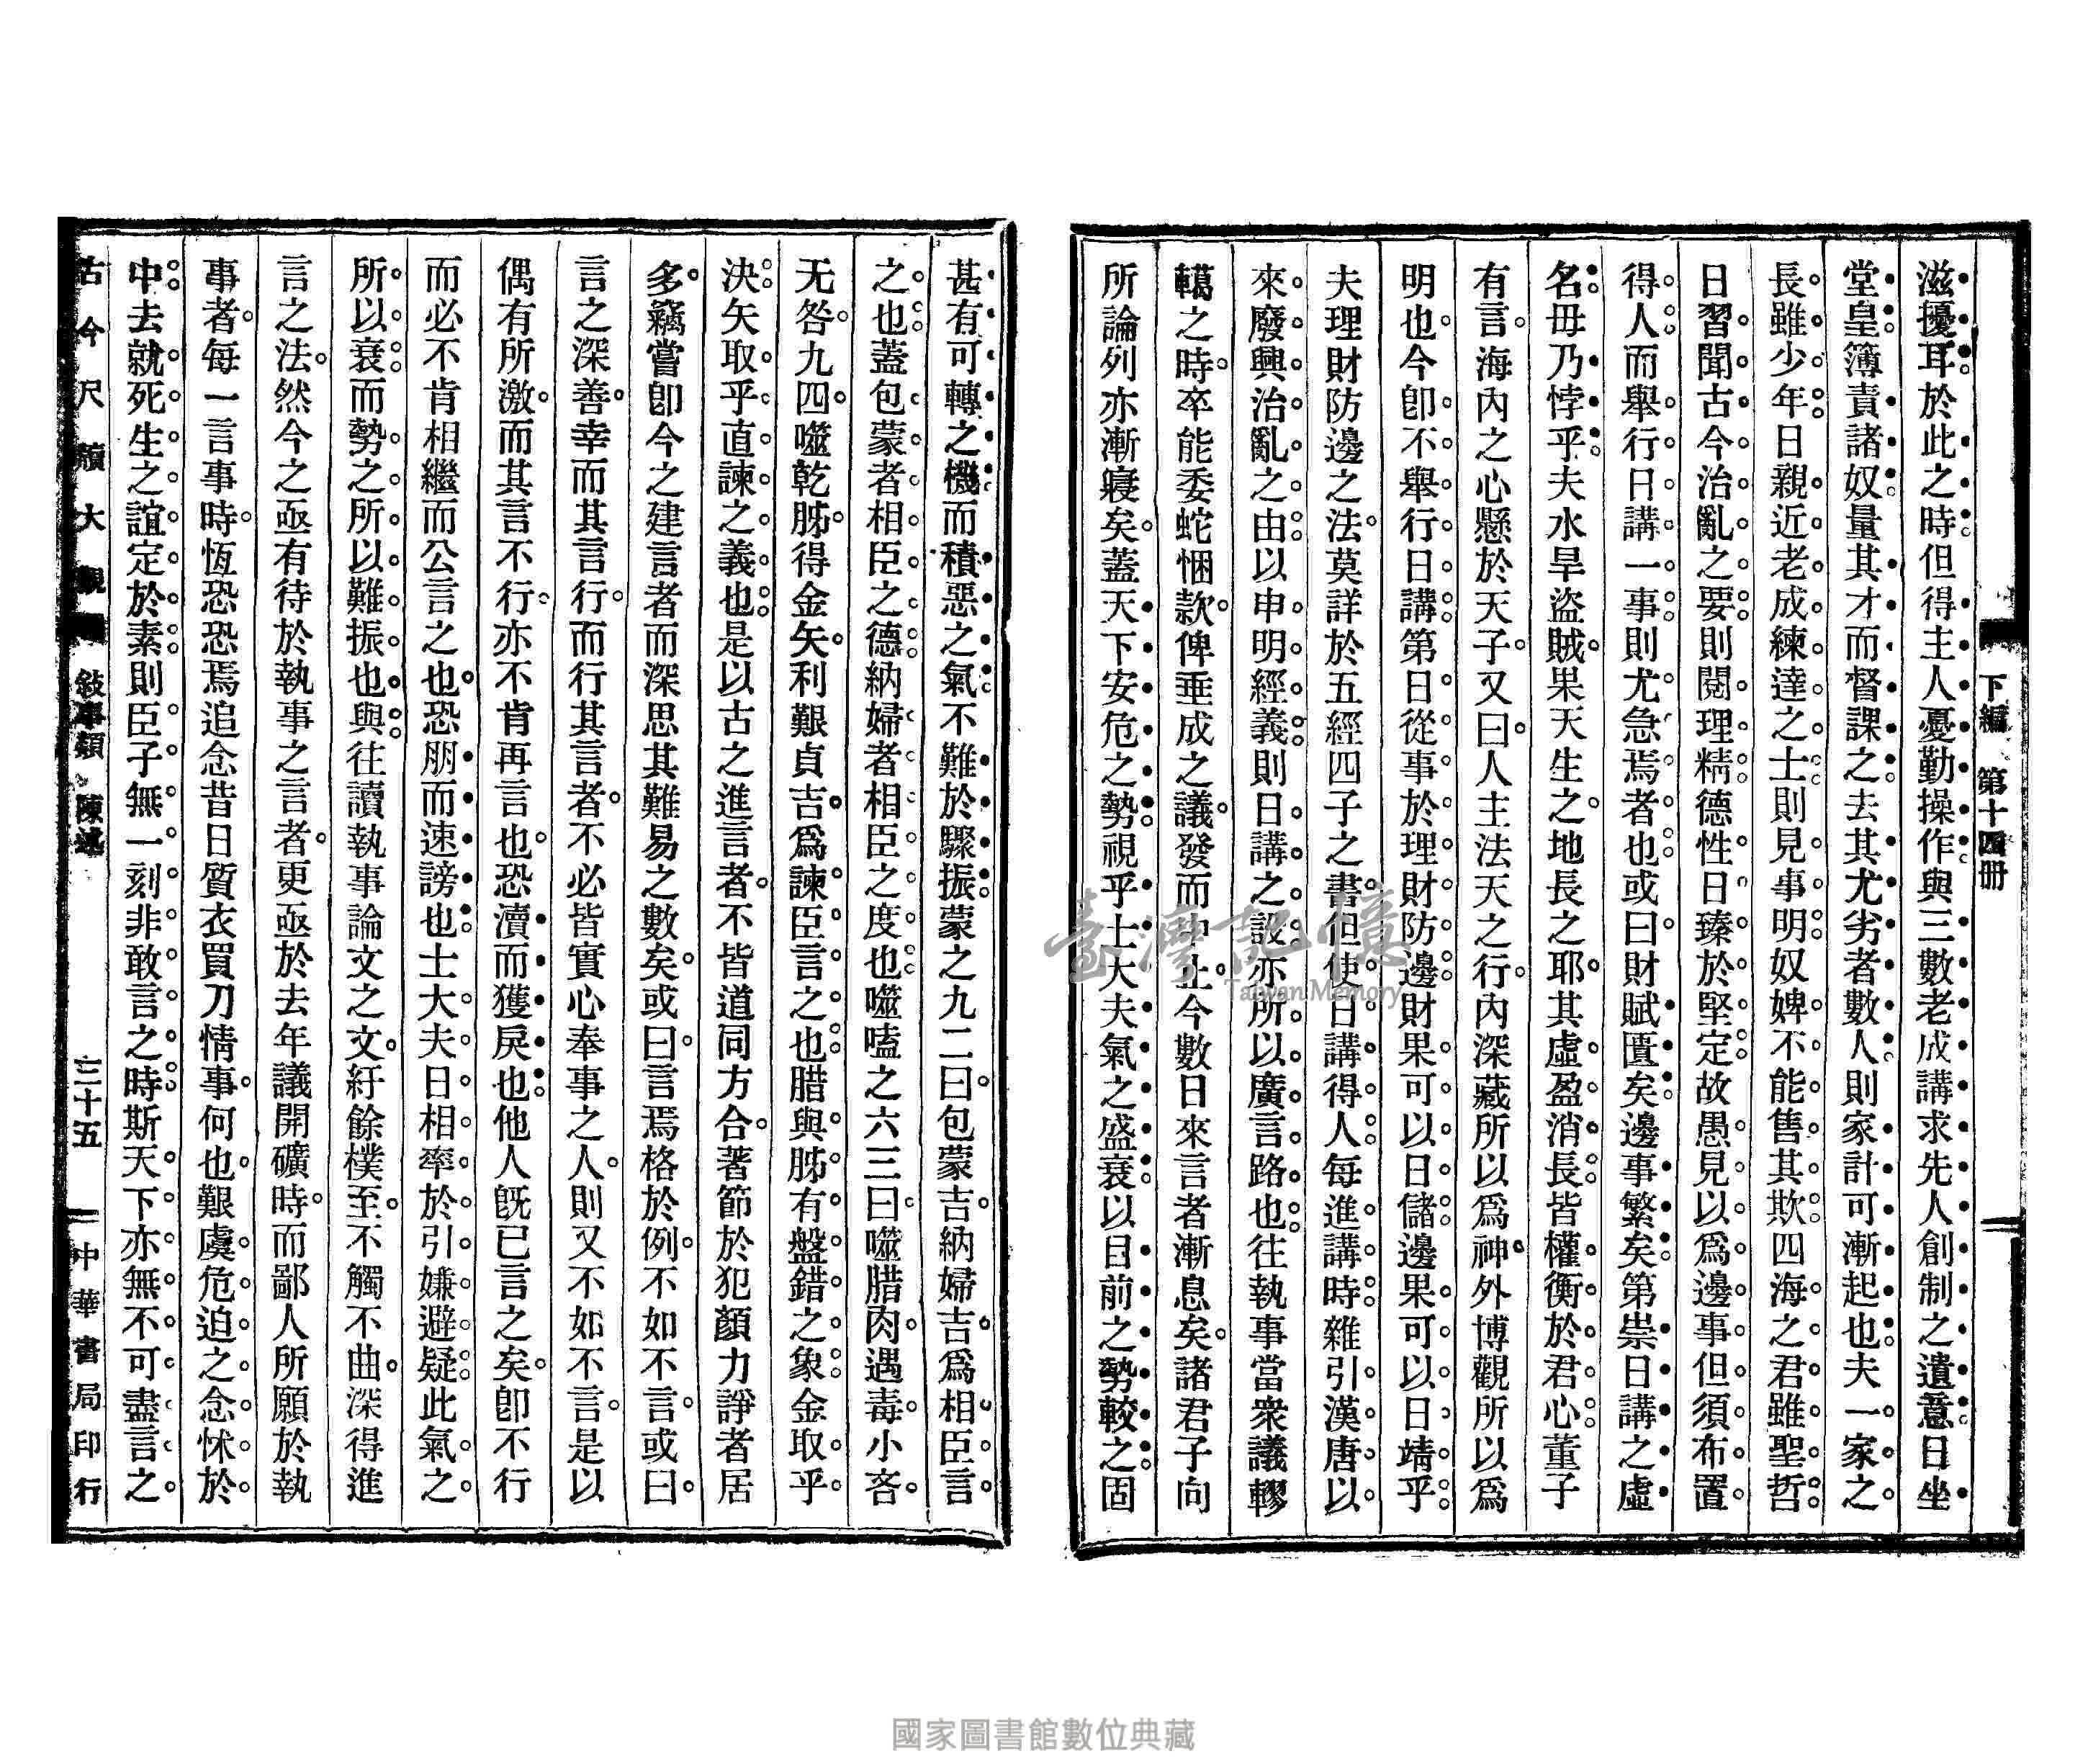 下編　第十四册
滋擾耳於此之時但得主人憂勤操作與三數老成講求先人創制之遺意日坐
堂皇簿責諸奴量其才而督課之去其尤劣者數人則家計可漸起也夫一家之
長雖少年日親近老成練達之士則見事明奴婢不能售其欺四海之君雖聖哲
日習聞古今治亂之要則閱理精德性日臻於堅定故愚見以爲邊事但須布置
得人而舉行日講一事則尤急焉者也或曰財賦匱矣邊事繁矣第祟日講之虛
名毋乃悖乎夫水旱盜賊果天生之地長之耶其虛盈消長皆權衡於君心董子
有言海內之心懸於天子又曰人主法天之行內深藏所以爲神外博觀所以爲
明也今卽不舉行日講第日從事於理財防邊財果可以日儲邊果可以日靖乎
夫理財防邊之法莫詳於五經四子之書但使日講得人每進講時雜引漢唐以
來廢興治亂之由以申明經義則日講之設亦所以廣言路也往執事當衆議轇
轕之時卒能委蛇悃款俾垂成之議發而中止今數日來言者漸息矣諸君子向
所論列亦漸寢矣蓋天下安危之勢視乎士大夫氣之盛衰以目前之勢較之固
甚有可轉之機而積惡之氣不難於驟振蒙之九二曰包蒙吉納婦吉爲相臣言
之也蓋包蒙者相臣之德納婦者相臣之度也噬嗑之六三曰噬腊肉遇毒小吝
无咎九四噬乾胏得金矢利艱貞吉爲諫臣言之也腊與胏有盤錯之象金取乎
決矢取乎直諫之義也是以古之進言者不皆道同方合著節於犯顏力諍者居
多竊嘗卽今之建言者而深思其難易之數矣或曰言焉格於例不如不言或曰
言之深善幸而其言行而行其言者不必皆實心奉事之人則又不如不言是以
偶有所激而其言不行亦不肯再言也恐瀆而獲戾也他人旣已言之矣卽不行
而必不肯相繼而公言之也恐朋而速謗也士大夫日相率於引嫌避疑此氣之
所以衰而勢之所以難振也與往讀執事論文之文紆餘樸至不觸不曲深得進
言之法然今之亟有待於執事之言者更亟於去年議開礦時而鄙人所願於執
事者每一言事時恆恐恐焉追念昔日質衣買刀情事何也艱虞危迫之念怵於
中去就死生之誼定於素則臣子無一刻非敢言之時斯天下亦無不可盡言之
古今尺牘大觀　敍事類　陳述　三十五　中華書局印行
臺灣記憶
Taiwan Memory
國家圖書館數位典藏